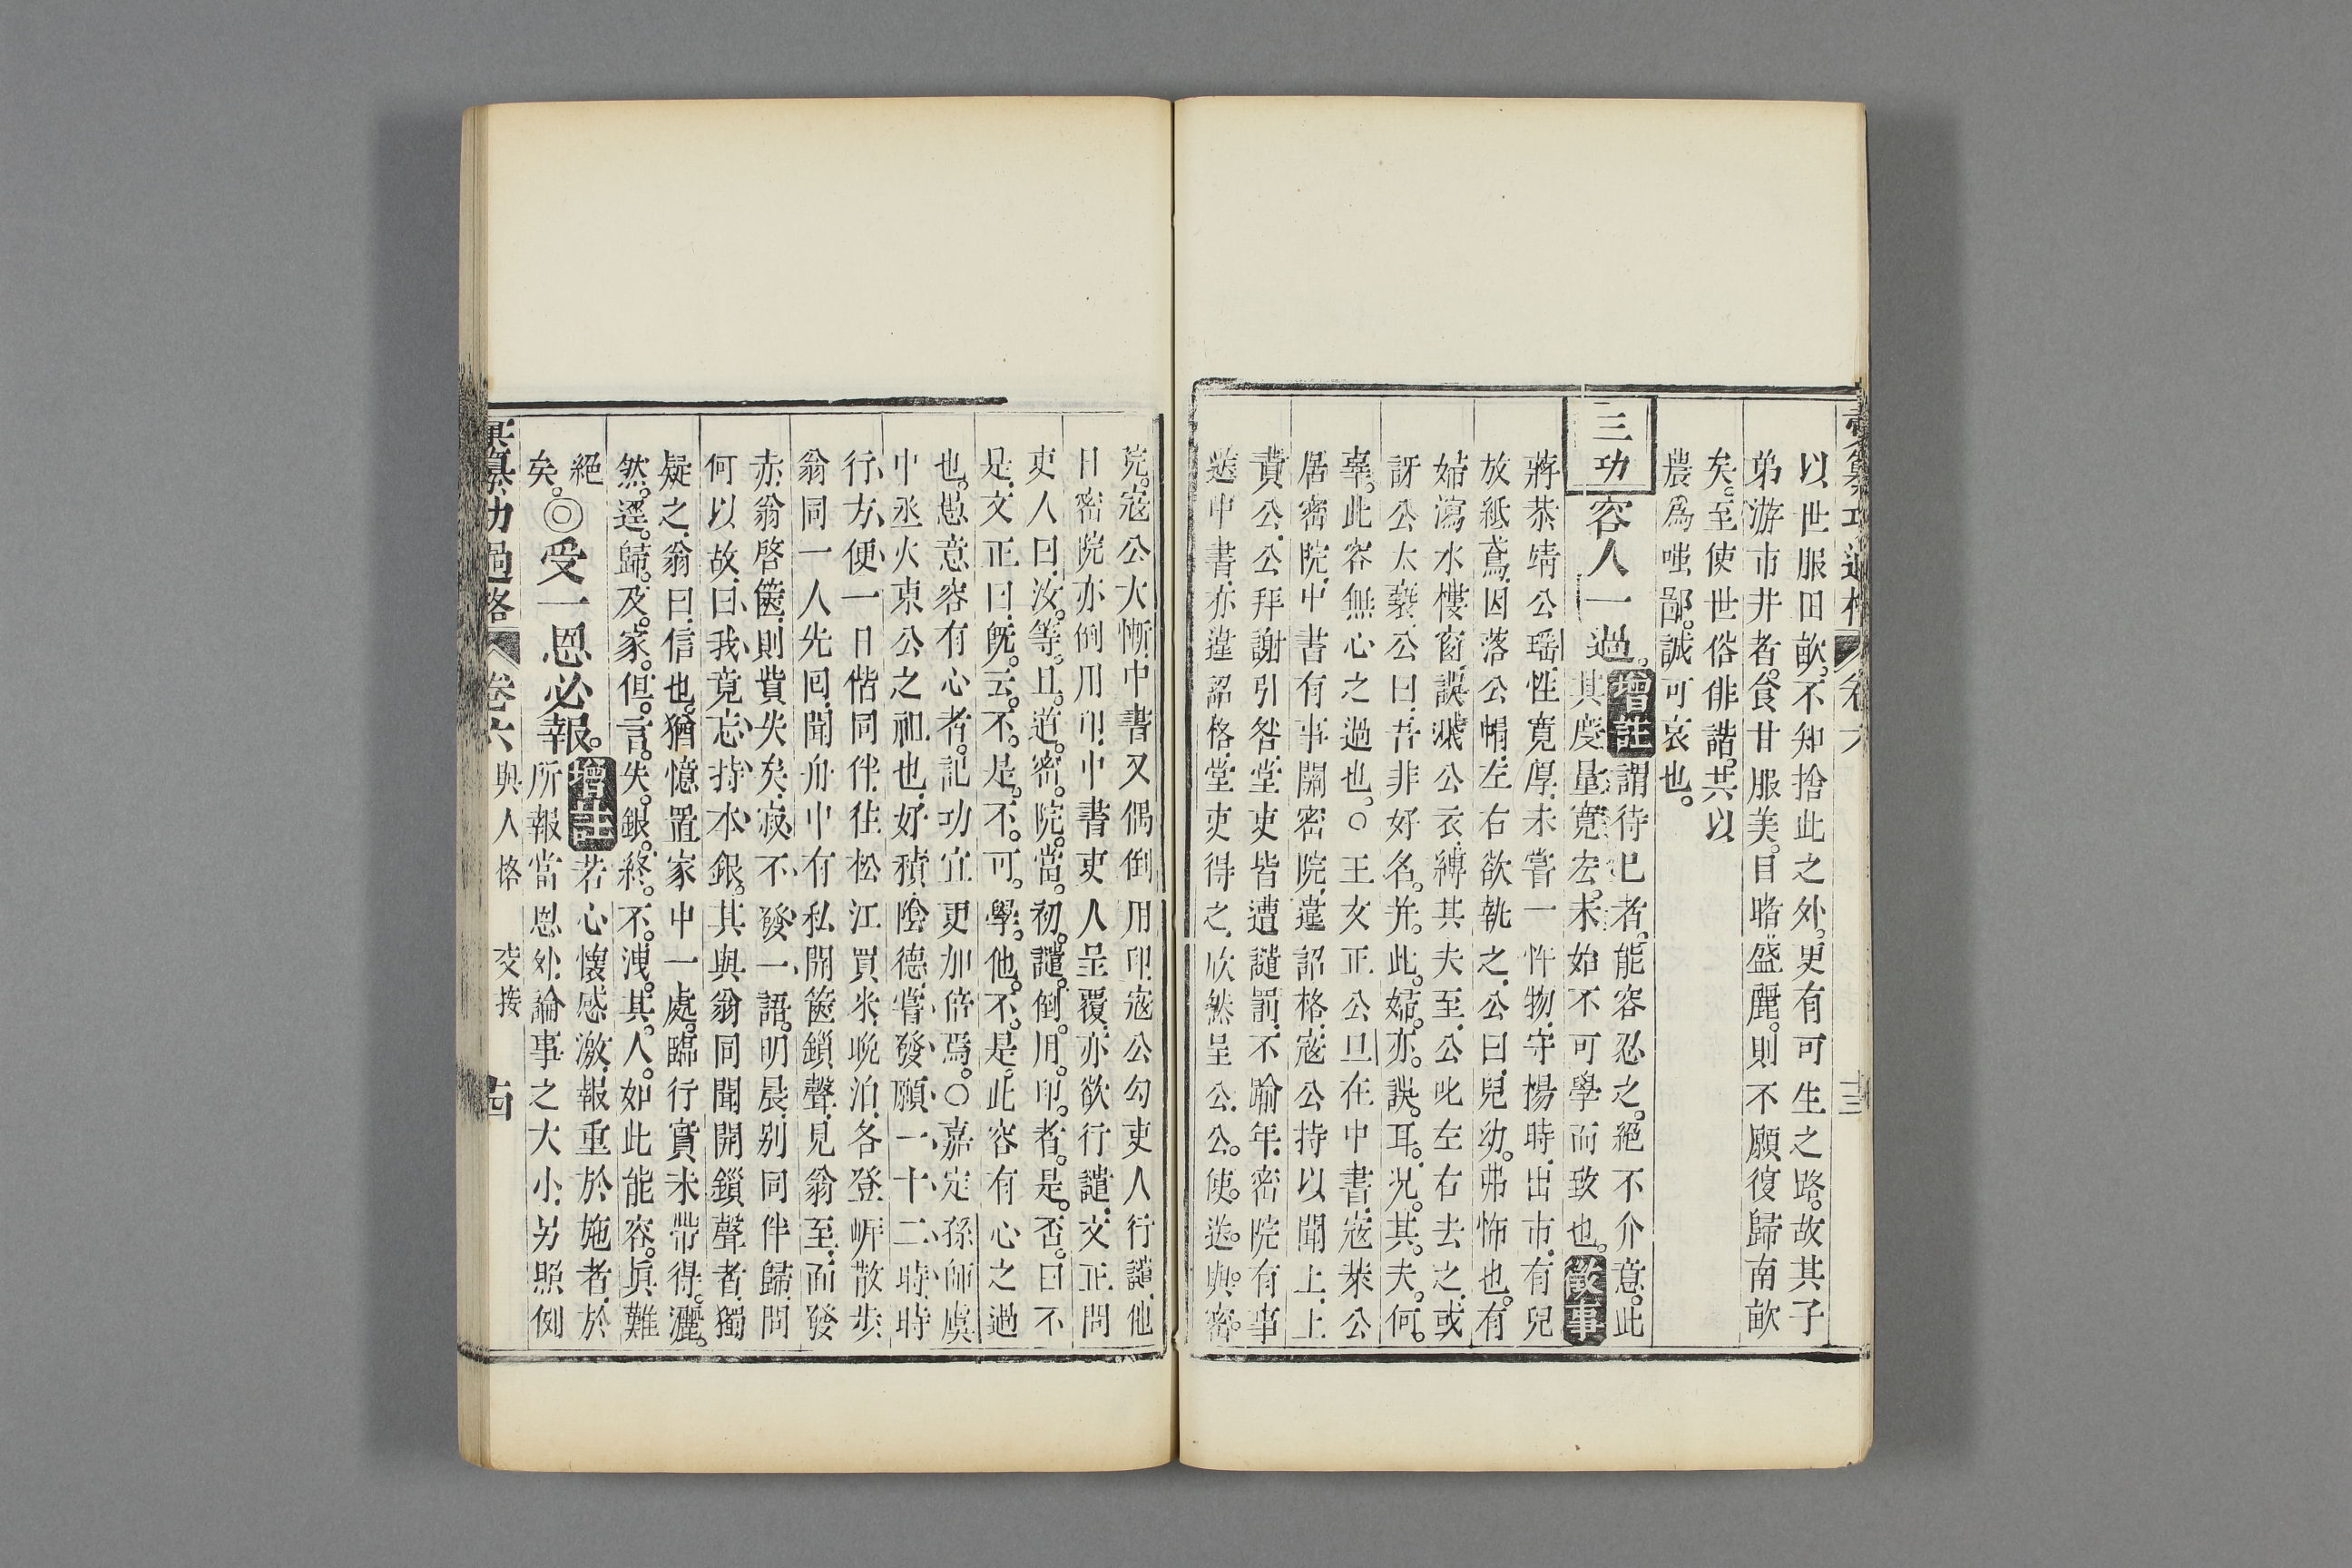 以世服田畝。不知捨此之外。更有可生之路。故其子
弟游市井者。食甘服美。目睹盛麗。則不願復歸南畝
矣。至使世俗俳諧。共以
農為嗤鄙。誠可哀也。
三功 容人一過。增註 謂待己者。能容忍之。絕不介意。此
其度量寬宏。未始不可學而致也。徵事
蔣恭靖公瑶。性寬厚。未嘗一忤物。守楊時。出市。有兒
放紙鳶。因落公帽。左右欲執之。公曰。兒幼。弗怖也。有
婦瀉水樓窗。誤濺公衣。縛其夫至。公叱左右去之。或
訝公太褻。公曰。吾非好名。并。此。婦。亦。誤。耳。況。其。夫。何。
辜。此容無心之過也。〇王文正公旦在中書。寇萊公
居密院。中書有事關密院。違詔格。寇公持以聞上。上
責公。公拜謝引咎。堂吏皆遭譴罰。不踰年。密院有事
送中書。亦違詔格。堂吏得之。欣然呈公。公。使。送。與。密。
院。寇公大慚。中書又偶倒用印。寇公勾吏人行譴。他
日密院亦倒用印。中書吏人呈覆。亦欲行譴。文正問
吏人曰。汝。等。且。道。密。院。當。初。譴。倒。用。印。者。是。否。曰不
是。文正曰。旣。云。不。是。不。可。學。他。不。是。此容有心之過
也。愚意容有心者。記功宜更加倍焉。〇嘉定孫師虞
中丞火東公之祖也。好積陰德。嘗發願一十二時。時
行方便。一日偕同伴。往松江買米。晚泊。各登岍散步
翁同一人先回。聞舟中有私開篋鎖聲。見翁至。而發
赤。翁啓篋。則貲失矣。寂不發一語。明晨。别同伴歸。問
何以故。曰我竟忘持水銀。其與翁同聞開鎖聲者。獨
疑之。翁曰。信也。猶憶置家中一處。臨行實未帶得。灑。
然。逕。歸。及。家。但。言。失。銀。終。不。洩。其。人。如此能容。眞難
絕
矣。◎受一恩必報。增註 若心懷感激。報重於施者。於
所報當恩外。論事之大小。另照例
卷六 與人格 交接 十四